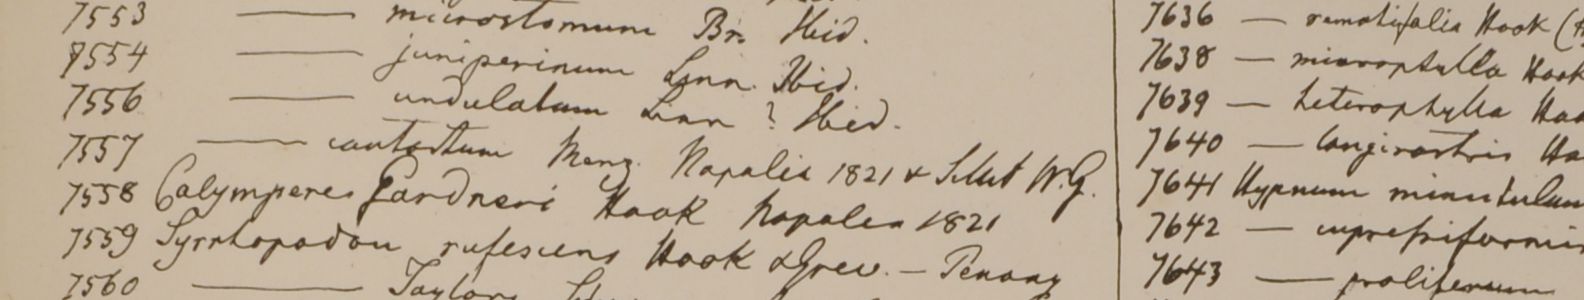 7553 —— microstomum Br. Ibid.
7554 —— juniperinum Linn. Ibid.
7556 —— undulatum Linn ? Ibid.
7557 —— contortum Menz. Napalia 1821 & Silhet W.G.
7558 Calymperes Gardneri Hook Napalea 1821
7559 Syrrhopodon rufescens Hook & Grev. — Penang
7560 —— Taylori
7636 — ramotifalia Hook
7638 — microphylla Hook
7639 — heterophylla
7640 — longirostris
7641 Hypnum minutulum
7642 — cupressiformis
7643 — proliferum